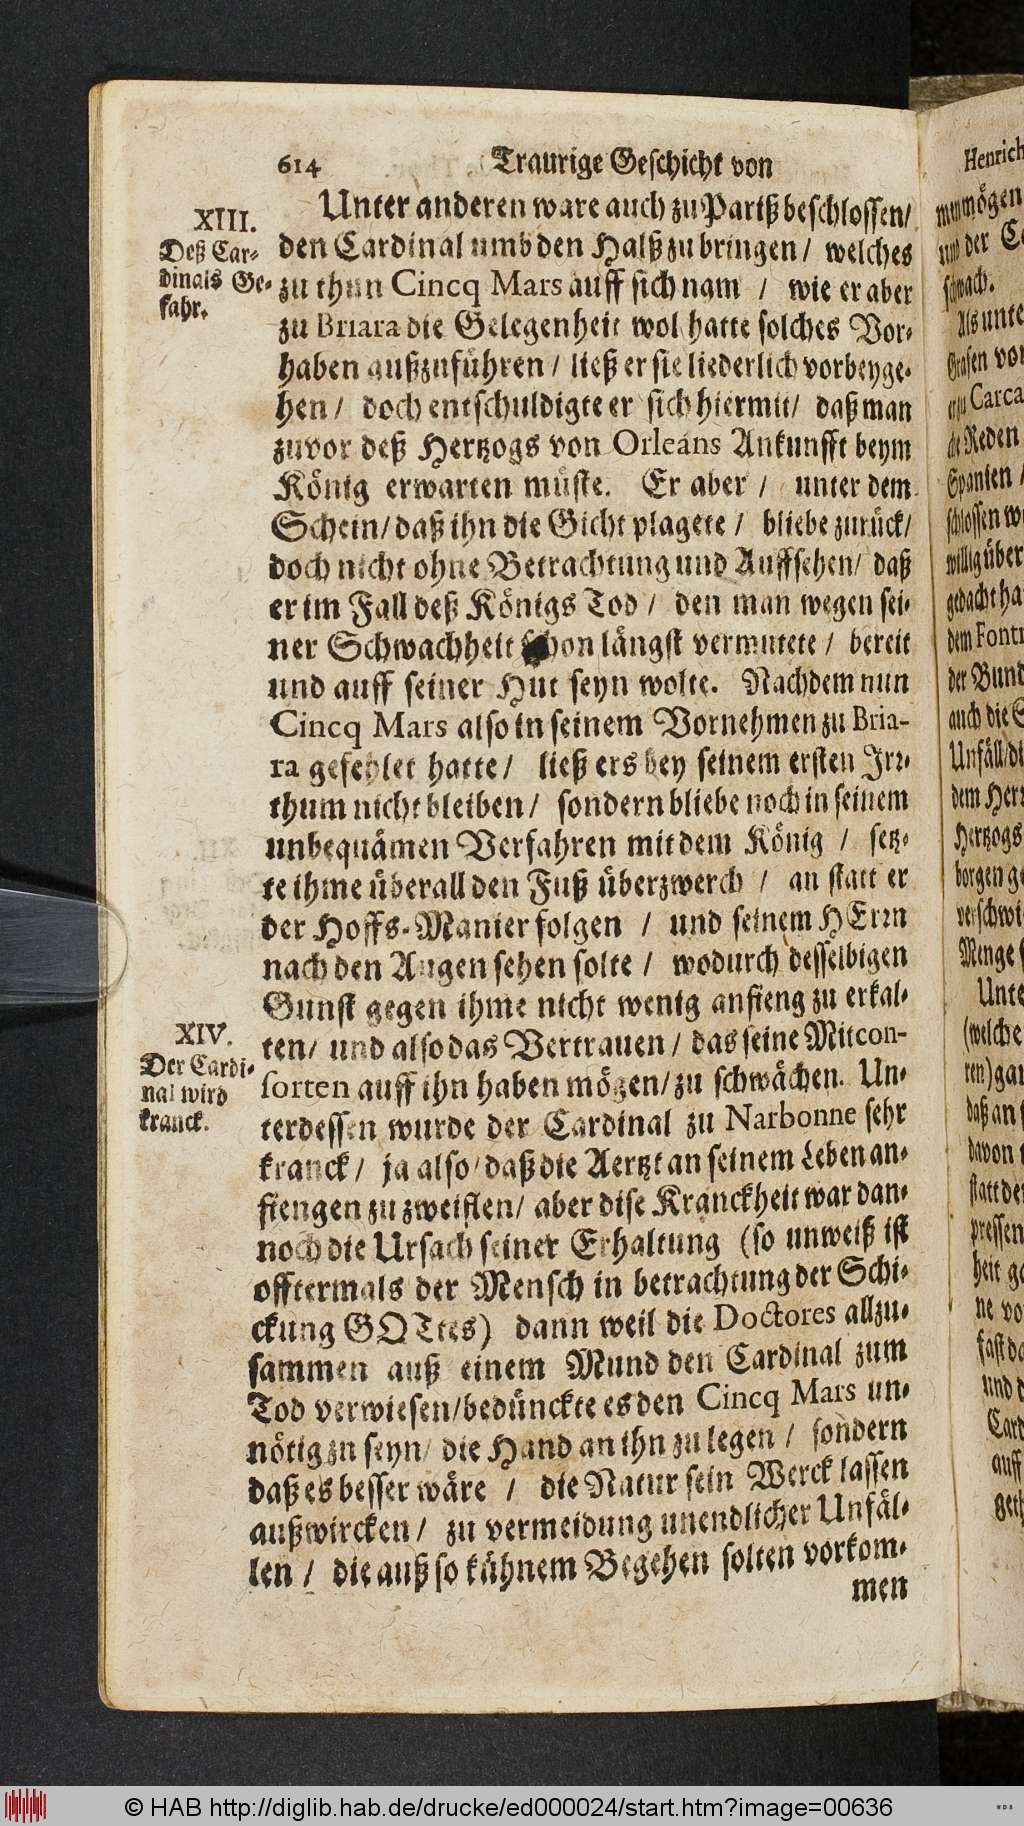 614 Traurige Geschicht von
XIII.
Deß Car-
dinals Ge-
fahr.
Unter anderen ware auch zu Pariß beschlossen/
den Cardinal umb den Halß zu bringen/ welches
zu thun Cincq Mars auff sich nam / wie er aber
zu Briara die Gelegenheit wol hatte solches Vor-
haben außzuführen / ließ er sie liederlich vorbeyge-
hen / doch entschuldigte er sich hiermit/ daß man
zuvor deß Hertzogs von Orleans Ankunfft beym
König erwarten müste. Er aber / unter dem
Schein/ daß ihn die Gicht plagete / bliebe zurück/
doch nicht ohne Betrachtung und Auffsehen/ daß
er im Fall deß Königs Tod / den man wegen sei-
ner Schwachheit schon längst vermutete / bereit
und auff seiner Hut seyn wolte. Nachdem nun
Cincq Mars also in seinem Vornehmen zu Bria-
ra gefehlet hatte / ließ ers bey seinem ersten Irr-
thum nicht bleiben / sondern bliebe noch in seinem
unbequämen Verfahren mit dem König / setz-
te ihme überall den Fuß überzwerch / an statt er
der Hoffs-Manier folgen / und seinem HErrn
nach den Augen sehen solte / wodurch desselbigen
Gunst gegen ihme nicht wenig anfieng zu erkal-
ten/ und also das Vertrauen / das seine Mitcon-
sorten auff ihn haben mögen/ zu schwächen. Un-
XIV.
Der Cardi-
nal wird
kranck.
terdessen wurde der Cardinal zu Narbonne sehr
kranck / ja also/ daß die Aertzt an seinem Leben an-
fiengen zu zweiflen/ aber dise Kranckheit war dan-
noch die Ursach seiner Erhaltung (so unweiß ist
offtermals der Mensch in betrachtung der Schi-
ckung GOTtes) dann weil die Doctores allzu-
sammen auß einem Mund den Cardinal zum
Tod verwiesen/ bedünckte es den Cincq Mars un-
nötig zu seyn/ die Hand an ihn zu legen / sondern
daß es besser wäre / die Natur sein Werck lassen
außwircken / zu vermeidung unendlicher Unfäl-
len / die auß so kühnem Begehen solten vorkom-
men
Henrich
mögen
und der
schwach.
Als unte
Grafen von
Carca
die Reden
Spanien /
schlossen
willig über
gedacht ha
dem Font
der Bund
auch die
Unfäll/ di
dem Her
Hertzogs
borgen ge
verschwi
Menge
Unte
(welche
ren) gan
daß an
davon
statt de
pressen
heit ge
ne vo
fast da
und d
Card
auff
geth
© HAB http://diglib.hab.de/drucke/ed000024/start.htm?image=00636